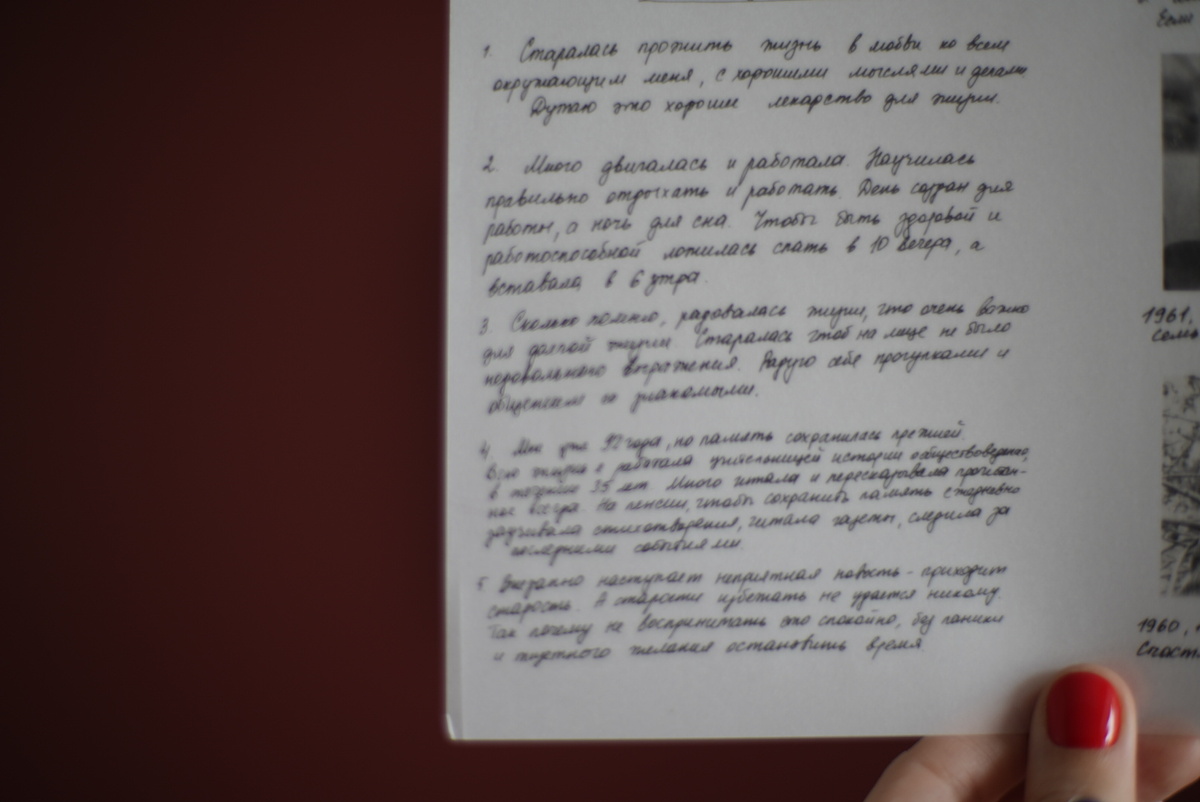 Если
1. Старалась прожить жизнь в любви ко всем
окружающим меня, с хорошими мыслями и делами.
Думаю это хорошее лекарство для жизни.
2. Много двигалась и работала. Научилась
правильно отдыхать и работать. День создан для
работы, а ночь для сна. Чтобы быть здоровой и
работоспособной ложилась спать в 10 вечера, а
вставала в 6 утра.
3. Сколько помню, радовалась жизни, что очень важно
для долгой жизни. Старалась чтоб на лице не было
недовольного выражения. Радую себя прогулками и
общением со знакомыми.
4. Мне уже 92 года, но память сохранилась прежней.
Всю жизнь я работала учительницей истории обществоведения,
в течении 35 лет. Много читала и пересказывала прочитан-
ное всегда. На пенсии, чтобы сохранить память ежедневно
заучивала стихотворения, читала газеты, следила за
последними событиями.
5 Внезапно наступает неприятная новость - приходит
старость. А старости избежать не удается никому.
Так почему не воспринимать это спокойно, без паники
и тщетного желания остановить время.
1961,
1960,